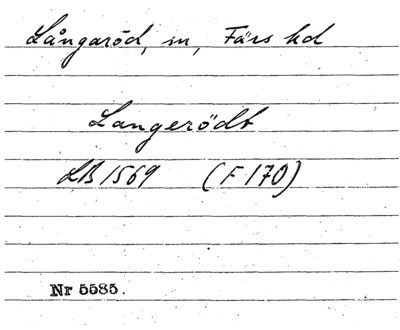 Långaröd, sn, Färs hd
Langerödt
LB 1569 (F 170)
Nr 5585.